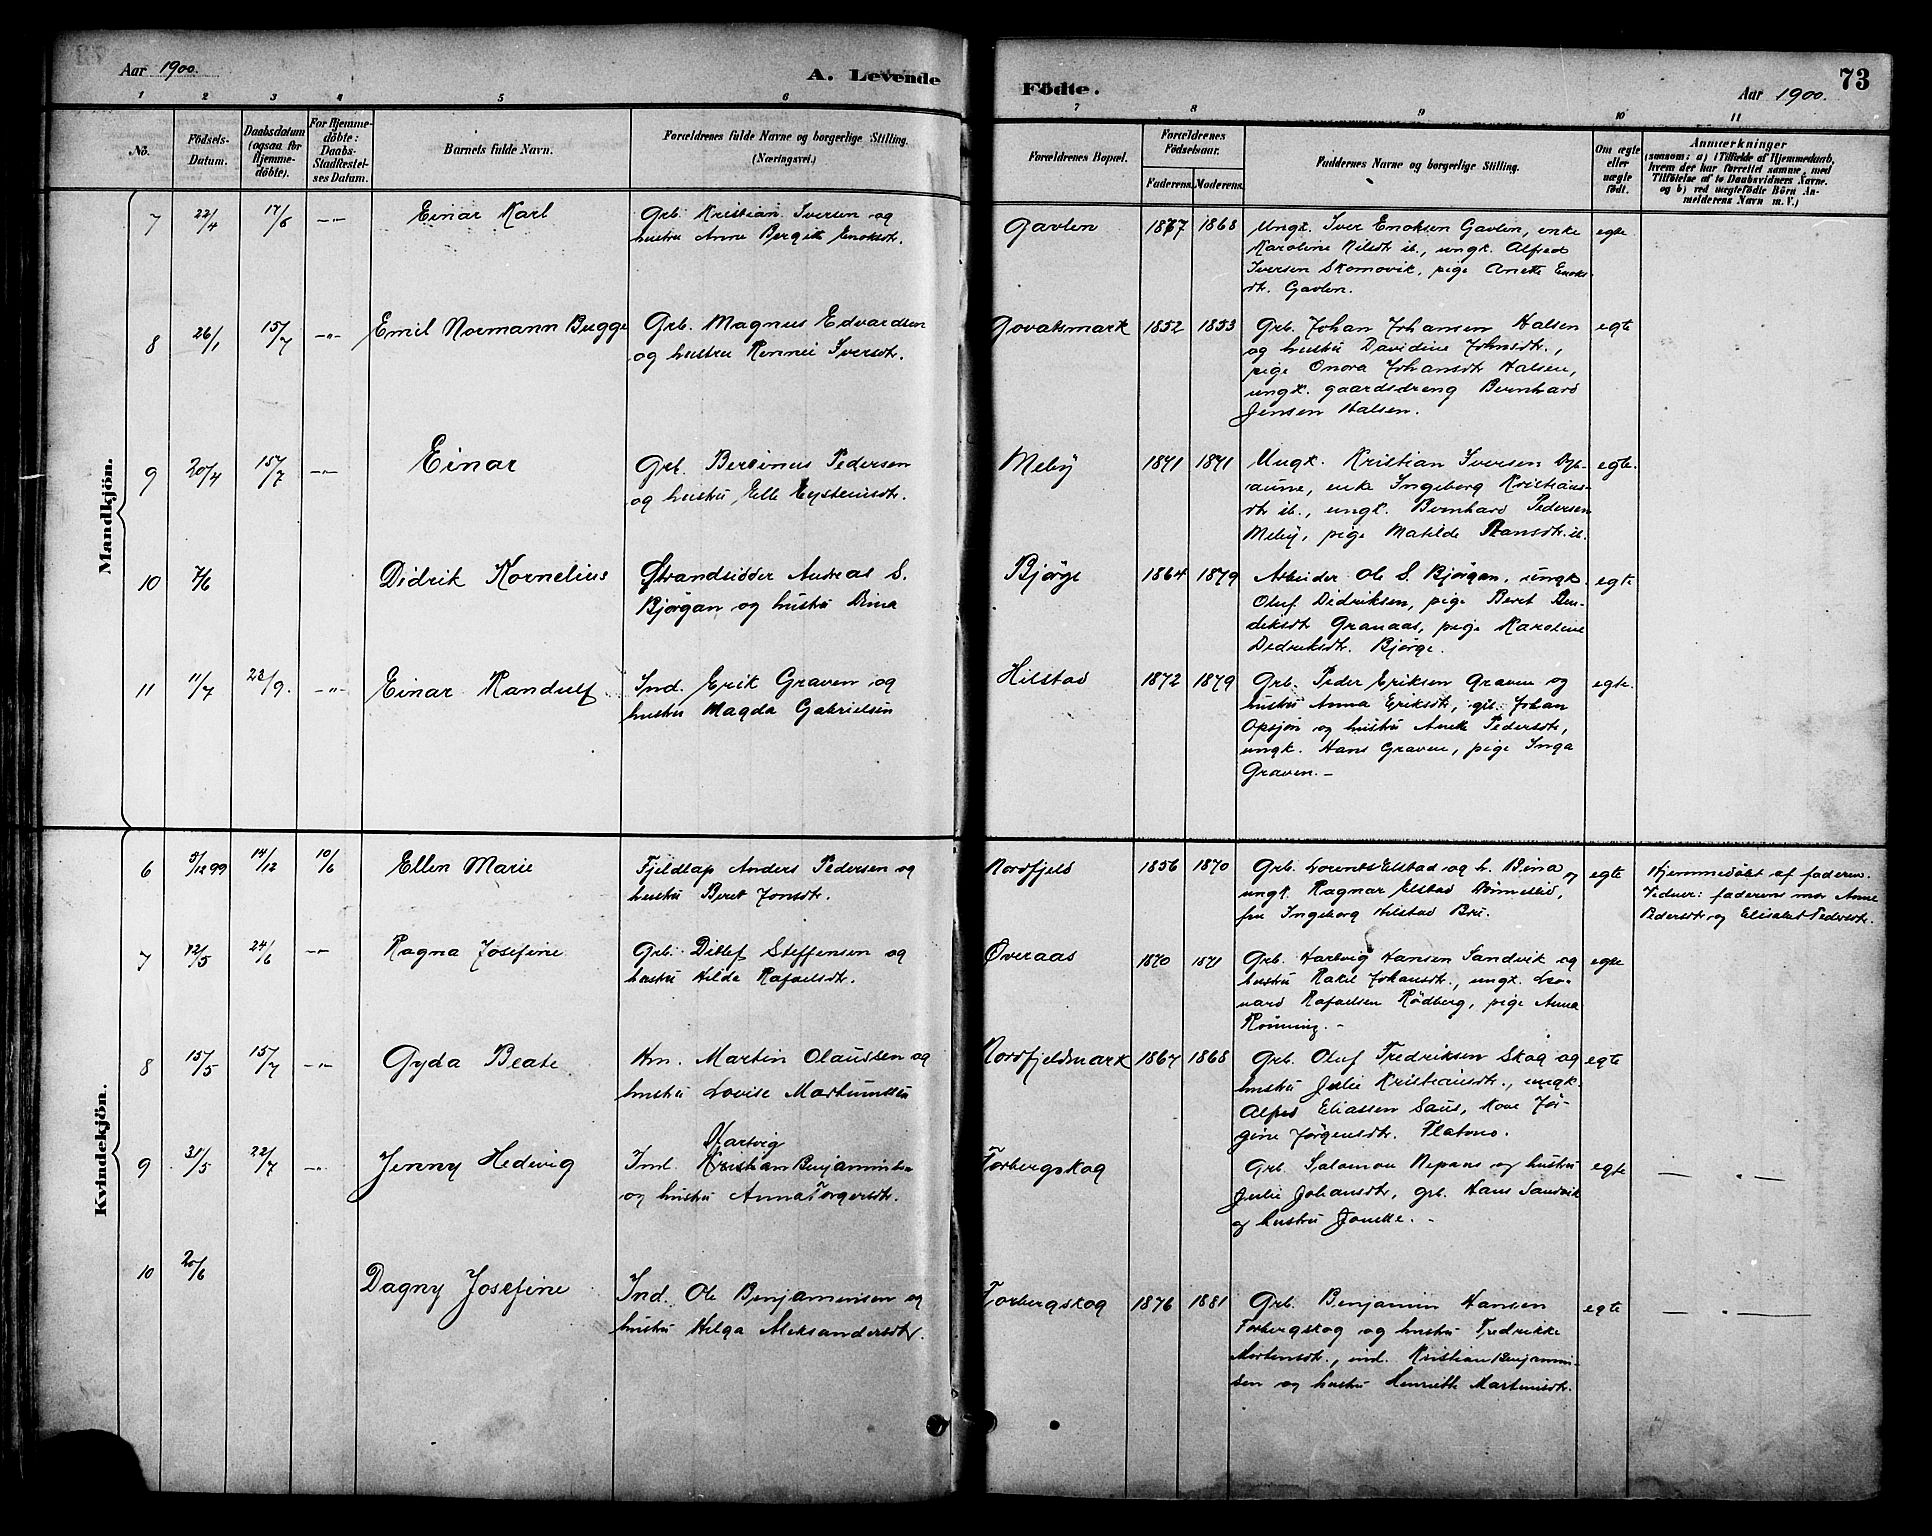 Aar 1900.
A. Levende
Födte.
Aar 1900.
73
1 2 3 4 5 6 7 8 9 10 11
No.
Födsels-
Datum.
Daabsdatum
(ogsaa for
Hjemme-
döbte).
For Hjemme-
döbte:
Daabs-
Stadfæstel-
ses Datum.
Barnets fulde Navn.
Forældrenes fulde Navne og borgerlige Stilling.
(Næringsvei.)
Forældrenes Bopæl.
Forældrenes
Födselsaar.
Faderens. Moderens.
Faddernes Navne og borgerlige Stilling.
Om ægte
eller
uægte
födt.
Anmærkninger
(saasom: a) i Tilfælde af Hjemmedaab,
hvem der har forrettet samme, med
Tilföielse af to Daabsvidners Navne.
og b) ved uægtefödte Börn An-
melderens Navn m. V.)
Mandkjön.
7 22/4 17/6 -"- Einar Karl
Grb. Kristian Iversen og
hustru Anne Bergit Enoksdt.
Gavlen 1877 1868
Ungk. Iver Enoksen Gavlen, enke
Karoline Nilsdt ib., ungk. Alfred
Iversen Skomovik, pige Anette Enoks-
dt. Gavlen.
egte
8 26/1 15/7 -"- Emil Normann Bugge
Grb. Magnus Edvardsen
og hustru Rennei Iversdt.
Govatsmark 1852 1853
Grb. Johan Johansen Halsen
og hustru Davidine Johnsdt.,
pige Onora Johansdt Halsen,
ungk. gaardsdreng Bernhard
Jensen Halsen.
egte
9 20/4 15/7 -"- Einar
Grb. Bersinus Pedersen
og hustru Elle Eysteinsdt.
Meby 1871 1871
Ungk. Kristian Iversen
enke Ingeborg Kristians-
dt ib., ungk. Bernhard Pedersen
Meby, pige Matilde Hansdt. ib.
egte.
10 7/6 Didrik Kornelius
Strandsidder Andreas S.
Bjørgan og hustru Dina
Bjørge 1864 1879
Arbeider Ole S. Bjørgan, ungk.
Oluf Didriksen, pige Beret Ben-
diksdt Granaas, pige Karoline
Didriksdt. Bjørge.
egte
11 11/7 23/9. -"- Einar Randulf
Ind. Erik Graven og
hustru Magda Gabrielsen
Hilstad 1872 1879
Grb. Peder Eriksen Graven og
hustru Anna Eriksdt, grb. Johan
Opsjøn og hustru Anette Pedersdt,
ungk. Hans Graven, pige Inga
Graven. -
egte.
Kvindekjön.
6 5/12 99 14/12 10/6 Ellen Marie
Fjeldlap Anders Pedersen og
hustru Beret Jonsdt.
Nordfjeld 1856 1870
Grb. Lorents Elstad og h. Bina og
ungk. Ragnar Elstad
fru Ingeborg Hilstad Bru.
egte
Hjemmedøbt af faderen.
Vidner: faderens mor Anne
Pedersdt og Elisabet Pedersdt.
7 12/5 24/6 -"- Ragna Josefine
Grb. Ditlef Steffensen og
hustru Hilda Rafaelsdt.
Øveraas 1870 1871
Grb. Hartvig Hansen Sandvik og
hustru Rakel Johansdt., ungk. Leo-
nard Rafaelsen Rödberg, pige Anna
Rönning. -
egte
8 15/5 15/7 -"- Gyda Beate
Km. Martin Olaussen og
hustru Lovise
Nordfjeldmark 1867 1868
Grb. Oluf Fredriksen Skog og
hustru Julie Kristiansdt., ungk.
Alfred Eliassen Saus, kone Jör-
gine Jörgensdt. Flatmo.
egte
9 31/5 22/7 -"- Jenny Hedvig
Hartvig
Ind. Kristian Benjaminsen
og hustru Anna Torgersdt.
Forbergskog
Grb. Salomon Nepaas og hustru
Julie Johansdt, grb. Hans Sandvik
og hustru Jonette. -
egte
— " —
10 20/6 Dagny Josefine
Ind. Ole Benjaminsen og
hustru Helga Aleksandersdt.
Forbergskog 1876 1881
Grb. Benjamin Hansen
Forbergskog og hustru Fredrikke
Mortensdt., ind. Kristian Benjamin-
sen og hustru Henriette Martinsdt.
egte
— " —